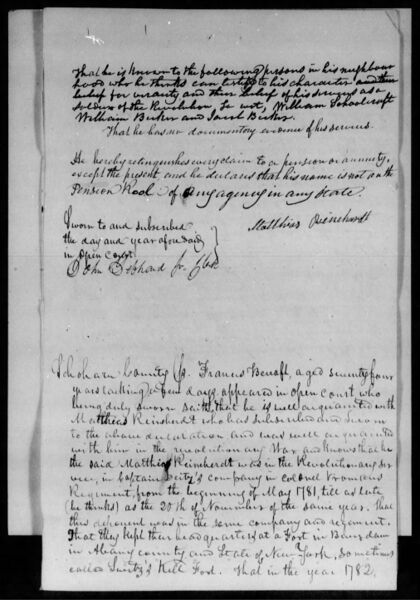 That he is known to the following persons in his neighbour
hood who he thinks can testify to his character and their
belief for veracity and their belief of his services as a
soldier of the Revolution, to wit, William Schoolcraft
William Becker and Jacob Becker.
That he has no documentary evidence of his services.
He hereby relinquishes every claim to a pension or annuity,
except the present and he declares that his name is not on the
Pension Rool of any agency in any State.
Sworn to and subscribed
the day and year aforesaid
in open Court
John Jr. Clerk
Matthias Reinehardt
Schoharie County Ss. Francis Becraft, aged seventy four
years lacking days, appeared in open Court who
being duly sworn saith, that he is well acquainted with
Matthias Reinherdt who has subscribed and sworn
to the above declaration and was well acquainted
with him in the revolutionary War and knows that he
the said Matthias Reinherdt was in the Revolutionary ser
vice, in Captain company in Colonel Vromans
Regiment, from the beginning of May 1781, till as late
(he thinks) as the 20th of November of the same year. That
this deponent was in the same company and regiment.
That they kept their headquarters at a Fort in
in Albany county and State of New York, sometimes
called Kill Ford. That in the year 1782,